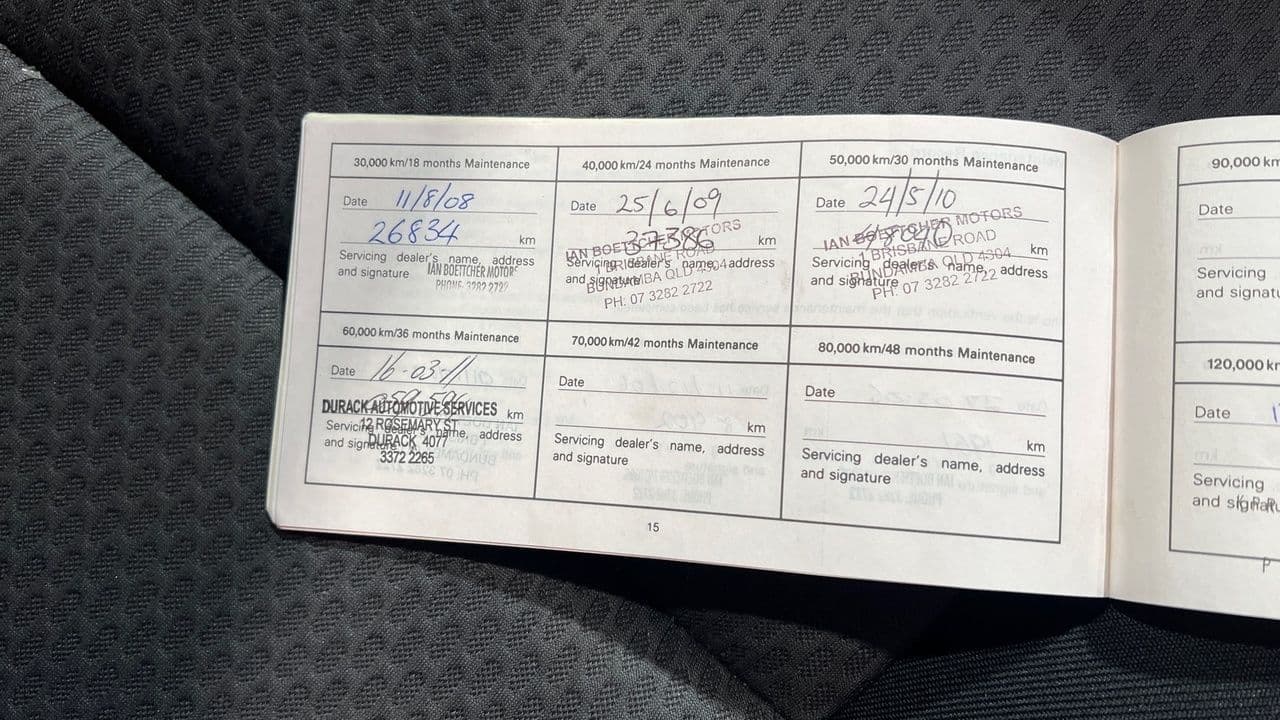 30,000 km/18 months Maintenance
Date 11/8/08
26834 km
Servicing dealer's name, address
and signature
IAN BOETTCHER MOTORS
PHONE 3282 2722
40,000 km/24 months Maintenance
Date 25/6/09
37386 km
Servicing dealer's name, address
and signature
IAN BOETTCHER MOTORS
BRISBANE ROAD
BUNDAMBA QLD 4304
PH: 07 3282 2722
50,000 km/30 months Maintenance
Date 24/5/10
km
Servicing dealer's name, address
and signature
IAN BOETTCHER MOTORS
BRISBANE ROAD
BUNDAMBA QLD 4304
PH: 07 3282 2722
60,000 km/36 months Maintenance
Date 16-03-11
km
Servicing dealer's name, address
and signature
DURACK AUTOMOTIVE SERVICES
12 ROSEMARY ST
DURACK 4077
3372 2265
70,000 km/42 months Maintenance
Date
km
Servicing dealer's name, address
and signature
80,000 km/48 months Maintenance
Date
km
Servicing dealer's name, address
and signature
15
90,000 km
Date
Servicing
and signatu
120,000 km
Date
Servicing
and signatu